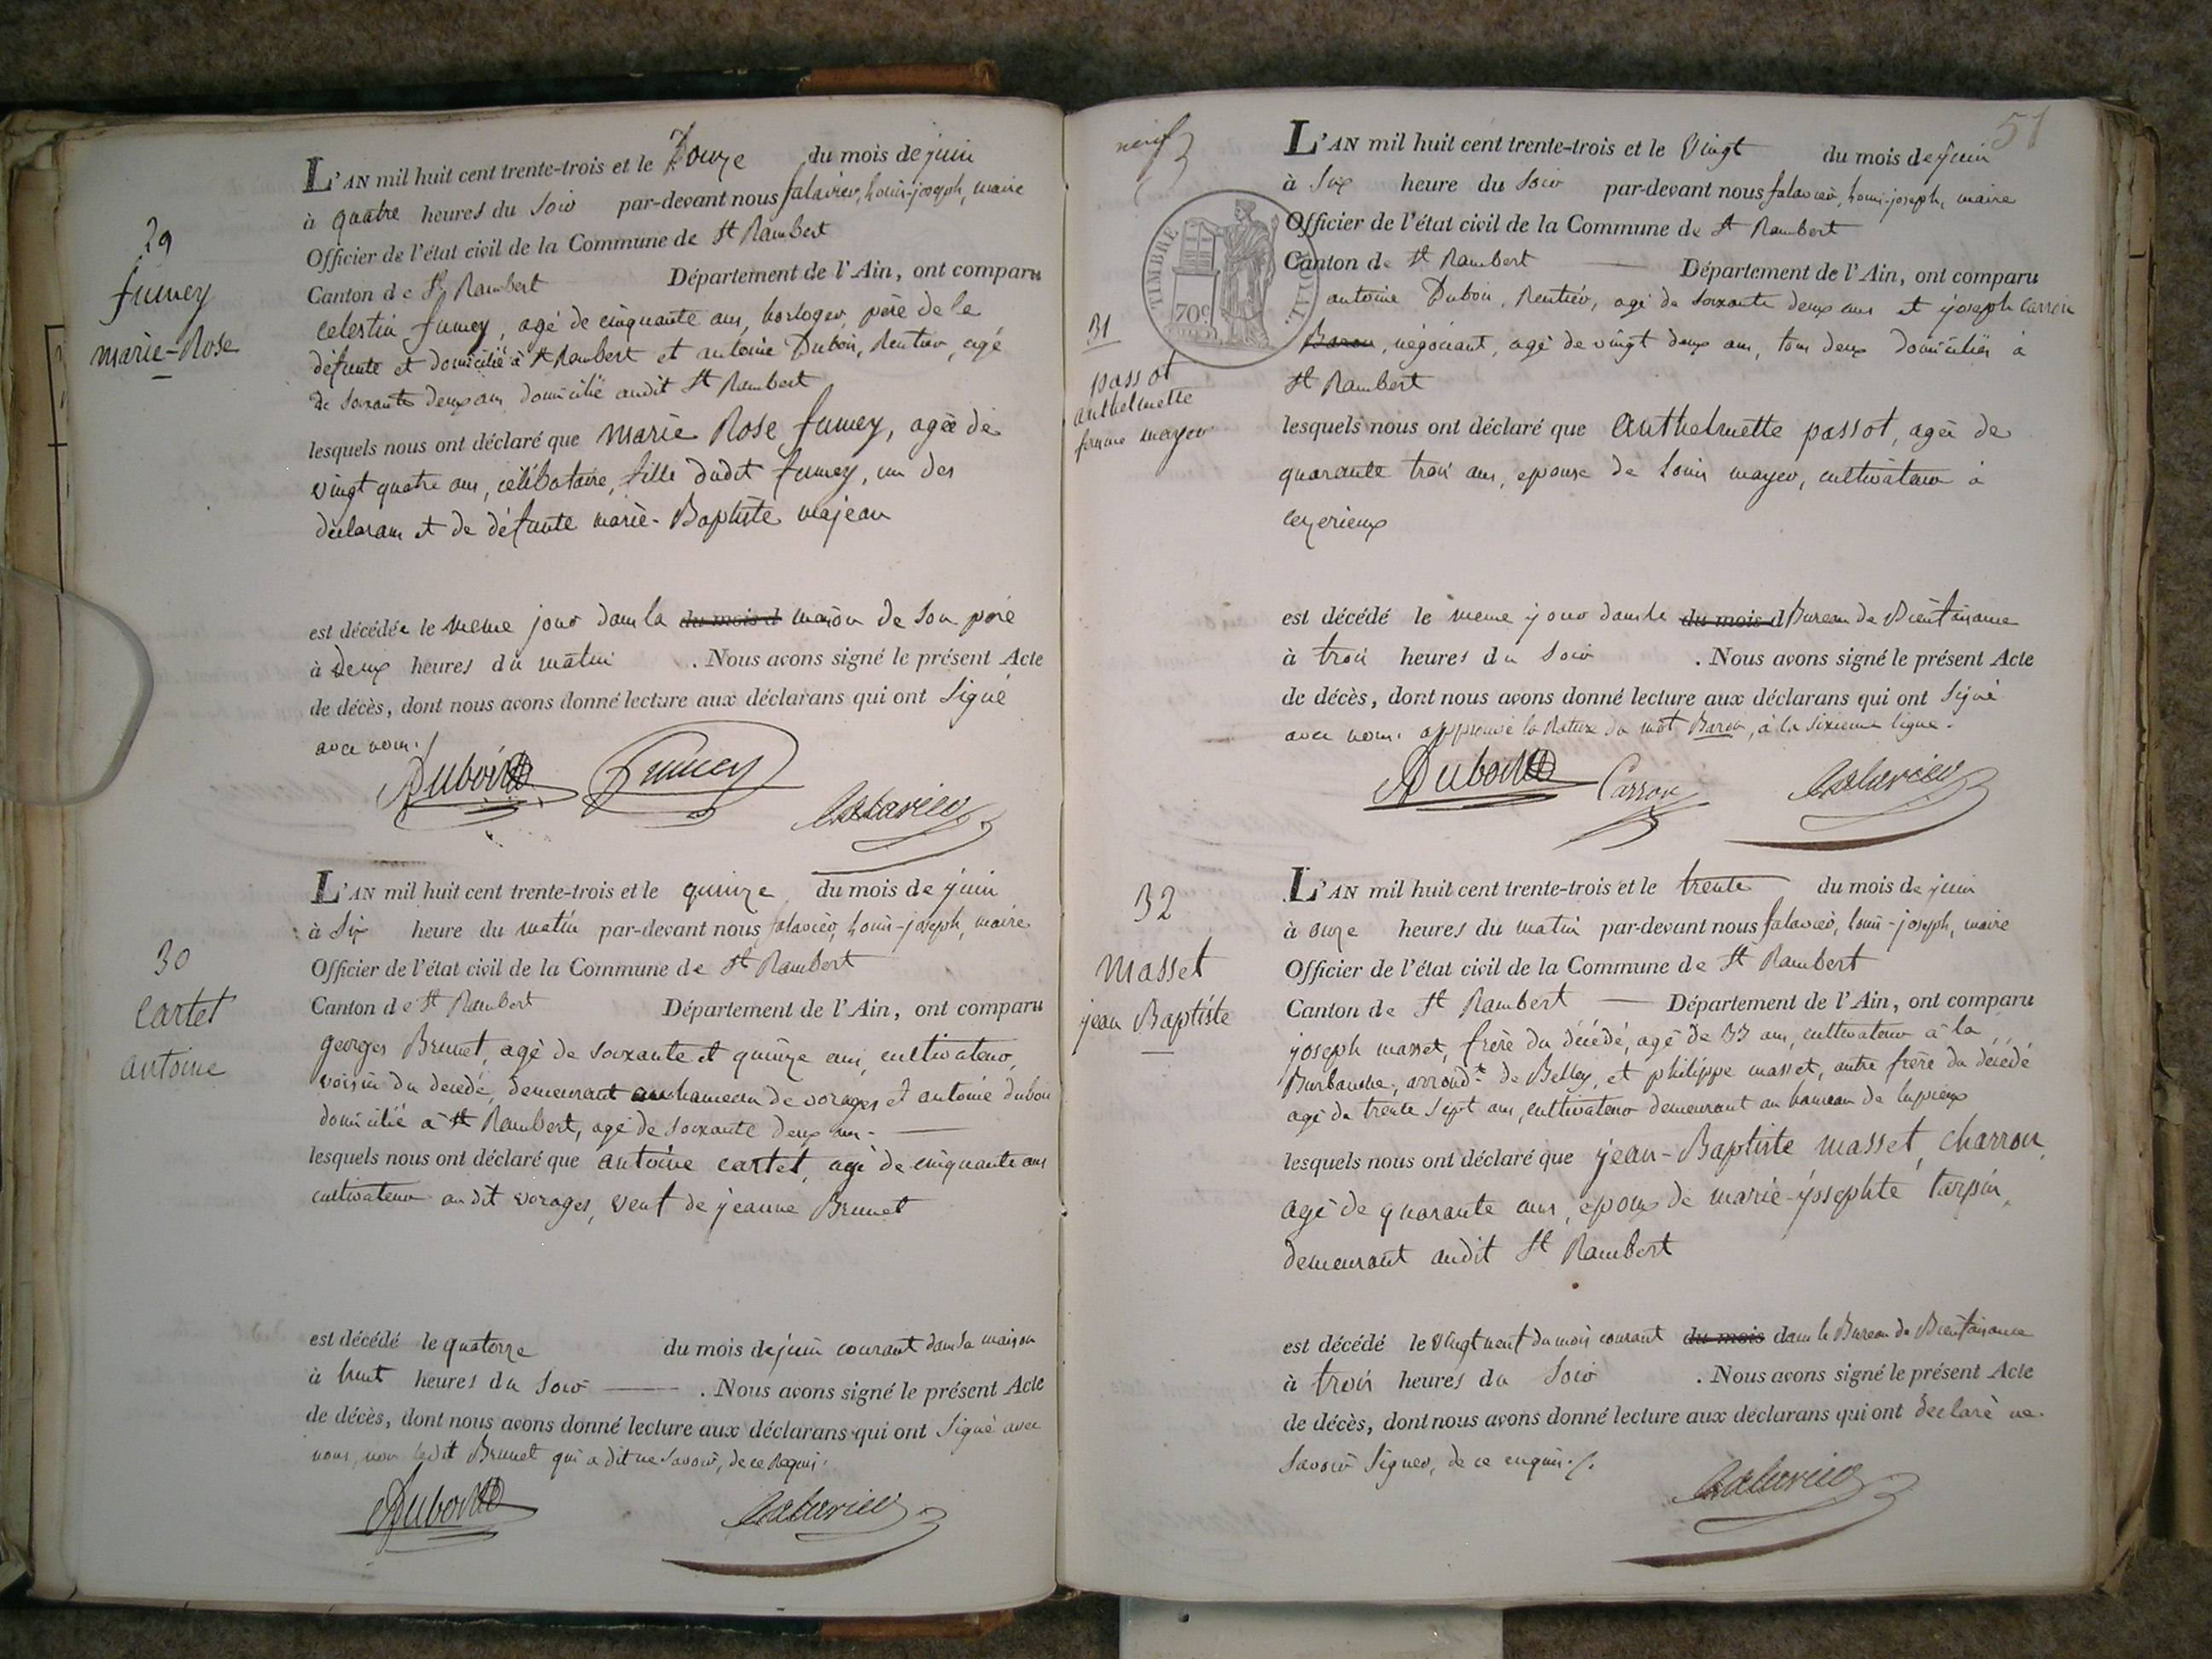 29
fumey
marie-Rose
L'AN mil huit cent trente-trois et le Douze du mois de juin
à quatre heures du soir par-devant nous falavier, Louis-joseph, maire
Officier de l'état civil de la Commune de St Rambert
Canton de St Rambert Département de l'Ain, ont comparu
celestin fumey, agé de cinquante ans, horloger, père de la
défunte et domicilié à St Rambert et antoine Dubois, Rentier, agé
de soixante deux ans domicilié audit St Rambert
lesquels nous ont déclaré que marie Rose fumey, agée de
vingt quatre ans, célibataire, fille dudit fumey, un des
declarans et de défunte marie-Baptiste majean
est décédée le meme jour dans la du mois d maison de son père
à Deux heures du matin . Nous avons signé le présent Acte
de décès, dont nous avons donné lecture aux déclarans qui ont signé
avec nous./
Dubois Fumey falavier
30
cartet
antoine
L'AN mil huit cent trente-trois et le quinze du mois de juin
à six heure du matin par-devant nous falavier, Louis-joseph, maire
Officier de l'état civil de la Commune de St Rambert
Canton de St Rambert Département de l'Ain, ont comparu
georges Brunet, agé de soixante et quinze ans, cultivateur,
voisin du decedé, demeurant au hameau de vorages et antoine dubois
domicilié à St Rambert, agé de soixante deux ans -
lesquels nous ont déclaré que antoine cartet, agé de cinquante ans
cultivateur au dit vorages, veuf de jeanne Brunet
est décédé le quatorze du mois de juin courant dans sa maison
à huit heures du soir . Nous avons signé le présent Acte
de décès, dont nous avons donné lecture aux déclarans qui ont signé avec
nous, non ledit Brunet qui a dit ne savoir, de ce Requis.
Dubois falavier
neuf
51
TIMBRE ROYAL
70c
31
passot
anthelmette
femme mayer
L'AN mil huit cent trente-trois et le vingt du mois de juin
à six heure du soir par-devant nous falavier, Louis-joseph, maire
Officier de l'état civil de la Commune de St Rambert
Canton de St Rambert Département de l'Ain, ont comparu
antoine Dubois, Rentier, agé de soixante deux ans et joseph Carron
Baron, négociant, agé de vingt deux ans, tous deux domiciliés à
St Rambert
lesquels nous ont déclaré que anthelmette passot, agée de
quarante trois ans, epouse de Louis mayer, cultivateur à
ceyzerieux
est décédé le meme jour dans le du mois d Bureau de Bienfaisance
à trois heures du soir . Nous avons signé le présent Acte
de décès, dont nous avons donné lecture aux déclarans qui ont signé
avec nous. approuvé la Rature du mot Baron, à la sixieme ligne.
Dubois Carron falavier
32
masset
jean Baptiste
L'AN mil huit cent trente-trois et le trente du mois de juin
à onze heures du matin par-devant nous falavier, Louis-joseph, maire
Officier de l'état civil de la Commune de St Rambert
Canton de St Rambert Département de l'Ain, ont comparu
joseph masset, frère du décédé, agé de 33 ans, cultivateur à la
Burbanche, arrondt de Belley, et philippe masset, autre frère du décédé
agé de trente sept ans, cultivateur demeurant au hameau de lupieux
lesquels nous ont déclaré que jean-Baptiste masset, charron,
agé de quarante ans, epoux de marie-josephte tarpin,
demeurant audit St Rambert
est décédé le vingt neuf du mois courant du mois dans le Bureau de Bienfaisance
à trois heures du soir . Nous avons signé le présent Acte
de décès, dont nous avons donné lecture aux déclarans qui ont déclaré ne
savoir signer, de ce enquis./.
falavier